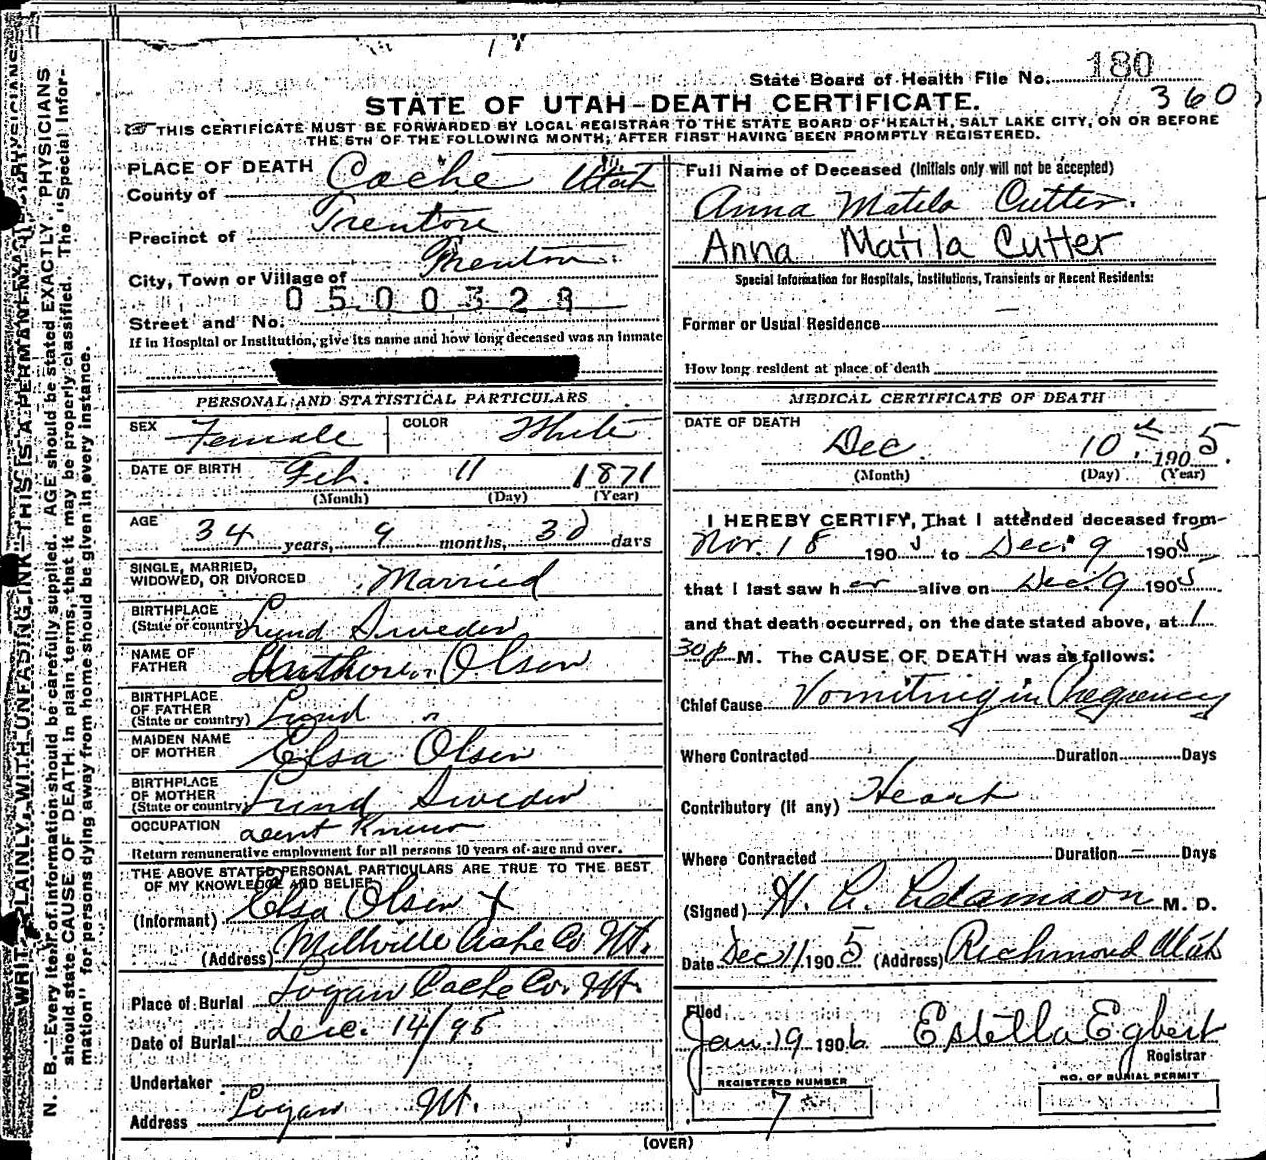 State Board of Health File No. 180
360
STATE OF UTAH—DEATH CERTIFICATE.
THIS CERTIFICATE MUST BE FORWARDED BY LOCAL REGISTRAR TO THE STATE BOARD OF HEALTH, SALT LAKE CITY, ON OR BEFORE
THE 5TH OF THE FOLLOWING MONTH, AFTER FIRST HAVING BEEN PROMPTLY REGISTERED.
WRITE PLAINLY, WITH UNFADING INK—THIS IS A PERMANENT
N. B.—Every item of information should be carefully supplied. AGE should be stated EXACTLY. PHYSICIANS
should state CAUSE OF DEATH in plain terms, that it may be properly classified. The "Special Infor-
mation" for persons dying away from home should be given in every instance.
PLACE OF DEATH
County of Cache Utah
Precinct of Trenton
City, Town or Village of Trenton
0500328
Street and No.
If in Hospital or Institution, give its name and how long deceased was an inmate
PERSONAL AND STATISTICAL PARTICULARS
SEX Female COLOR White
DATE OF BIRTH Feb. 11 1871
(Month) (Day) (Year)
AGE 34 years, 9 months, 30 days
SINGLE, MARRIED,
WIDOWED, OR DIVORCED Married
BIRTHPLACE
(State or country) Lund Sweden
NAME OF
FATHER Olson
BIRTHPLACE
OF FATHER
(State or country) Lund "
MAIDEN NAME
OF MOTHER Elsa Olsen
BIRTHPLACE
OF MOTHER
(State or country) Lund Sweden
OCCUPATION dont Know
Return remunerative employment for all persons 10 years of age and over.
THE ABOVE STATED PERSONAL PARTICULARS ARE TRUE TO THE BEST
OF MY KNOWLEDGE AND BELIEF
(Informant) Elsa Olsen X
(Address) Millville Cache Co Ut.
Place of Burial Logan Cache Co. Ut.
Date of Burial Dec. 14/95
Undertaker
Address Logan Ut.
Full Name of Deceased (Initials only will not be accepted)
Anna Matila Cutter.
Anna Matila Cutter
Special Information for Hospitals, Institutions, Transients or Recent Residents:
Former or Usual Residence —
How long resident at place of death
MEDICAL CERTIFICATE OF DEATH
DATE OF DEATH
Dec. 10th 1905.
(Month) (Day) (Year)
I HEREBY CERTIFY, That I attended deceased from
Nov. 18 1905 to Dec. 9 1905
that I last saw her alive on Dec. 9 1905
and that death occurred, on the date stated above, at 1
30 p M. The CAUSE OF DEATH was as follows:
Chief Cause Vomiting in Pregnency
Where Contracted Duration Days
Contributory (if any) Heart
Where Contracted Duration — Days
(Signed) H. C. Adamson M. D.
Date Dec 11, 1905 (Address) Richmond Utah
Filed
Jan. 19 1906 Estella Egbert
Registrar
REGISTERED NUMBER
7
NO. OF BURIAL PERMIT
(OVER)